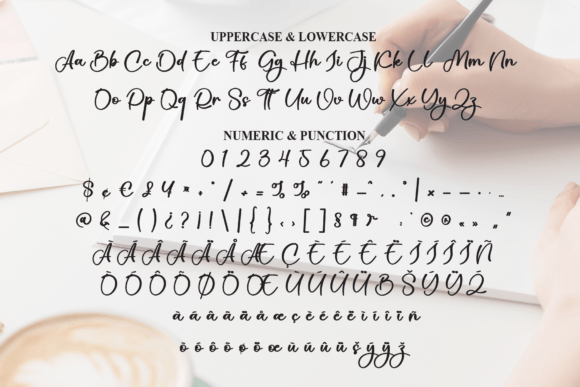 UPPERCASE & LOWERCASE
Aa Bb Cc Dd Ee Ff Gg Hh Ii Jj Kk Ll Mm Nn
Oo Pp Qq Rr Ss Tt Uu Vv Ww Xx Yy Zz
NUMERIC & PUNCTION
0 1 2 3 4 5 6 7 8 9
$ ¢ € £ ¥ / + = # _ ^ | × – —
@ & _ ( ) ¿ ? ¡ ! \ | { } ‹ › [ ] § © ® « » „ ”
À Á Â Ã Ä Å Æ Ç È É Ê Ë Ì Í Î Ï Ñ
Ò Ó Ô Õ Ø Ö Œ Ù Ú Û Ü Š Ý Ÿ Ž
à á â ã ä å æ ç è é ê ë ì í î ï ñ
ò ó ô õ ø ö œ ù ú û ü š ý ÿ ž